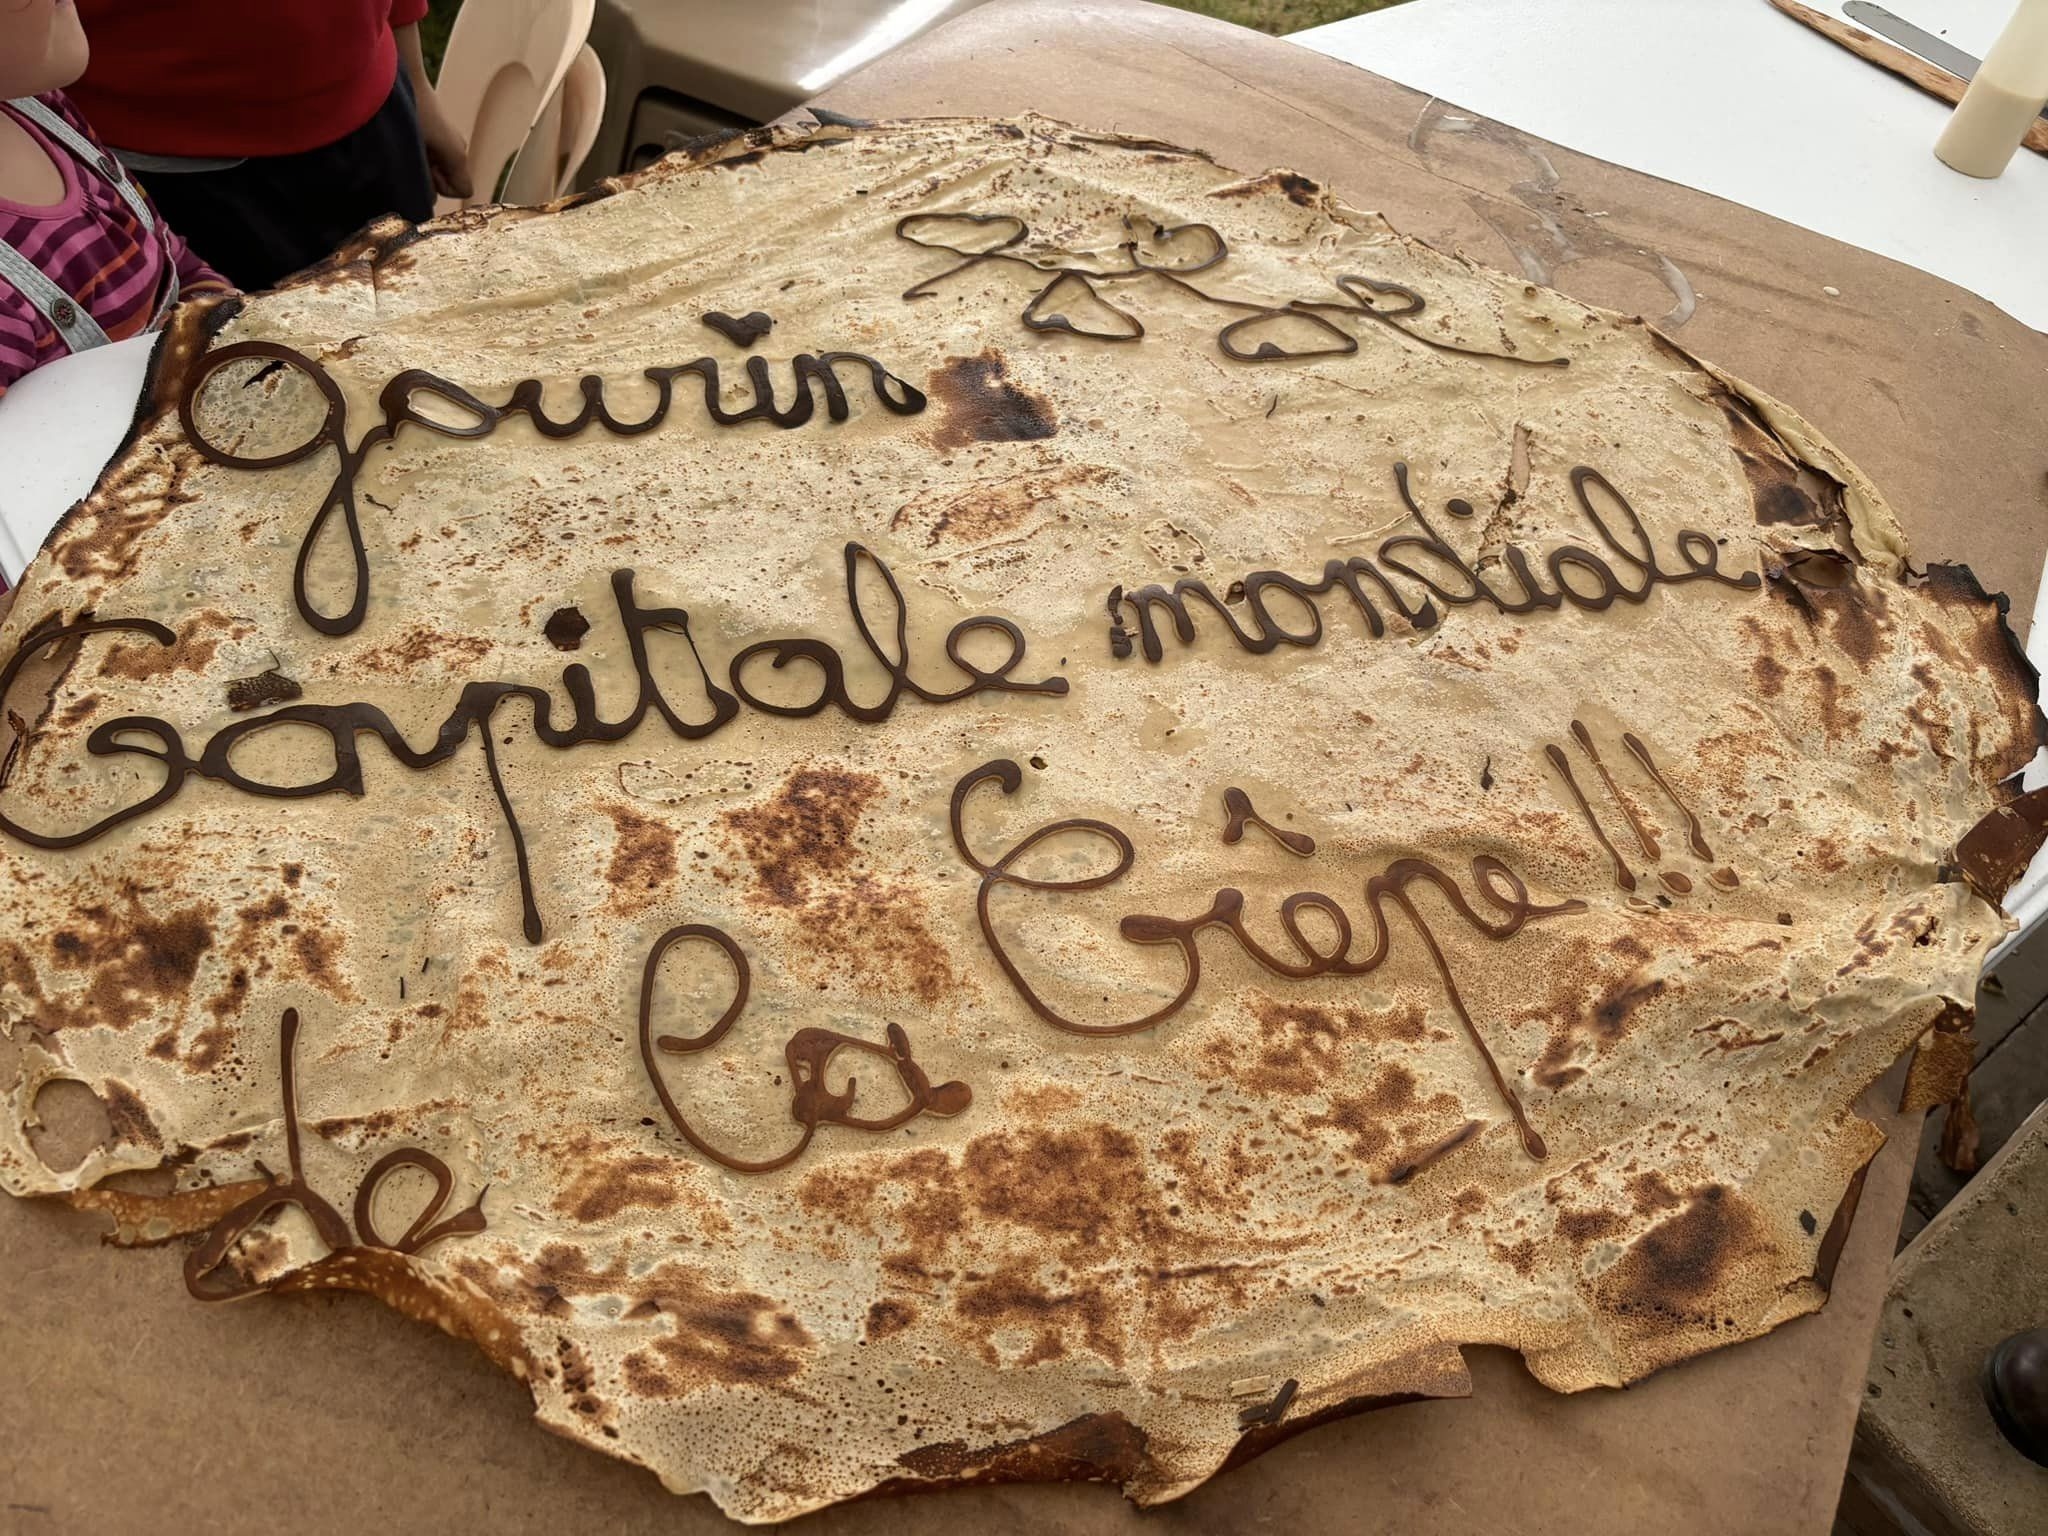 Gourin
Capitale mondiale
de la Crêpe !!!